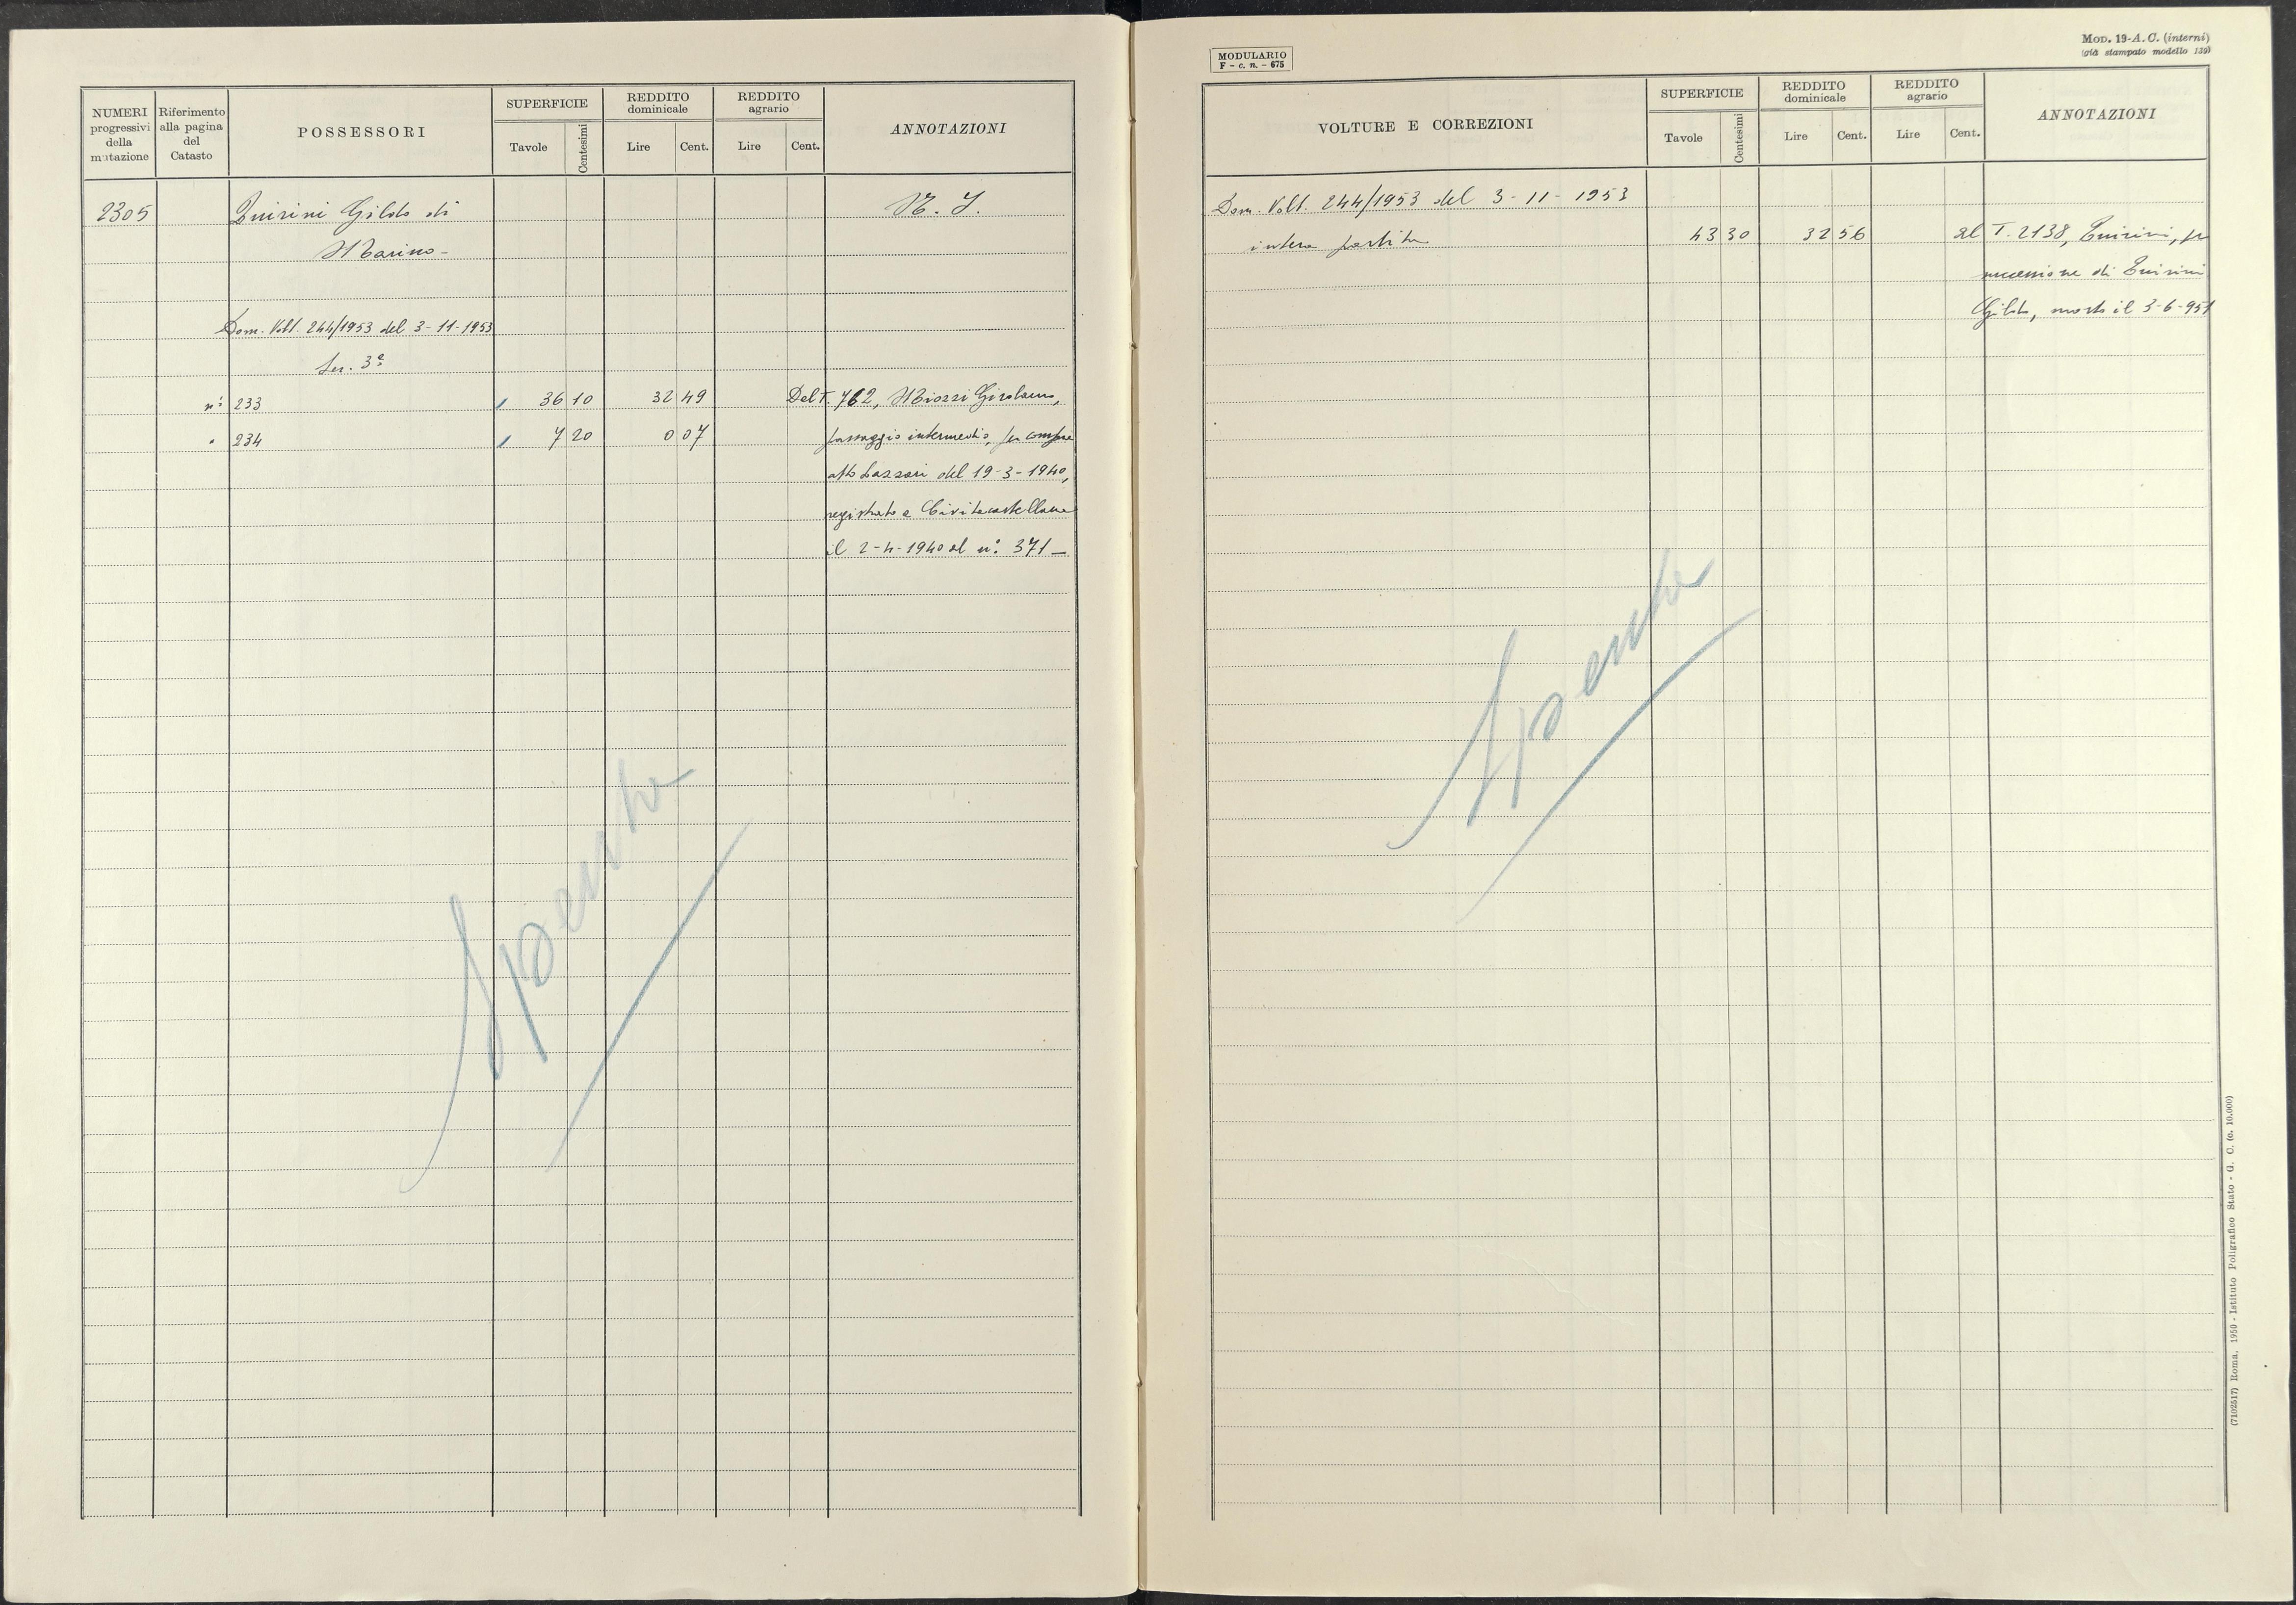 NUMERI progressivi della mutazione
Riferimento alla pagina del Catasto
POSSESSORI
SUPERFICIE
Tavole
Centesimi
REDDITO dominicale
Lire
Cent.
REDDITO agrario
Lire
Cent.
ANNOTAZIONI
2305 Quirini Gildo di N. I.
Marino -
Dom. Volt. 244/1953 del 3-11-1953
Sez. 3ª
n° 233 36 10 32 49 Del T. 762, Miozzi Girolamo,
" 234 7 20 0 07 passaggio intermedio, per compra
atto Lazzari del 19-3-1940,
registrato a Civitacastellana
il 2-4-1940 al n° 371 -
Spenta
MODULARIO
F - c. n. - 675
MOD. 19-A. C. (interni)
(già stampato modello 139)
VOLTURE E CORREZIONI
SUPERFICIE
Tavole
Centesimi
REDDITO dominicale
Lire
Cent.
REDDITO agrario
Lire
Cent.
ANNOTAZIONI
Dom. Volt. 244/1953 del 3-11-1953
intera partita 43 30 32 56 al T. 2138, Quirini, per
successione di Quirini
Gildo, morto il 3-6-951
Spenta
(7102517) Roma, 1950 - Istituto Poligrafico Stato - G. C. (c. 10.000)